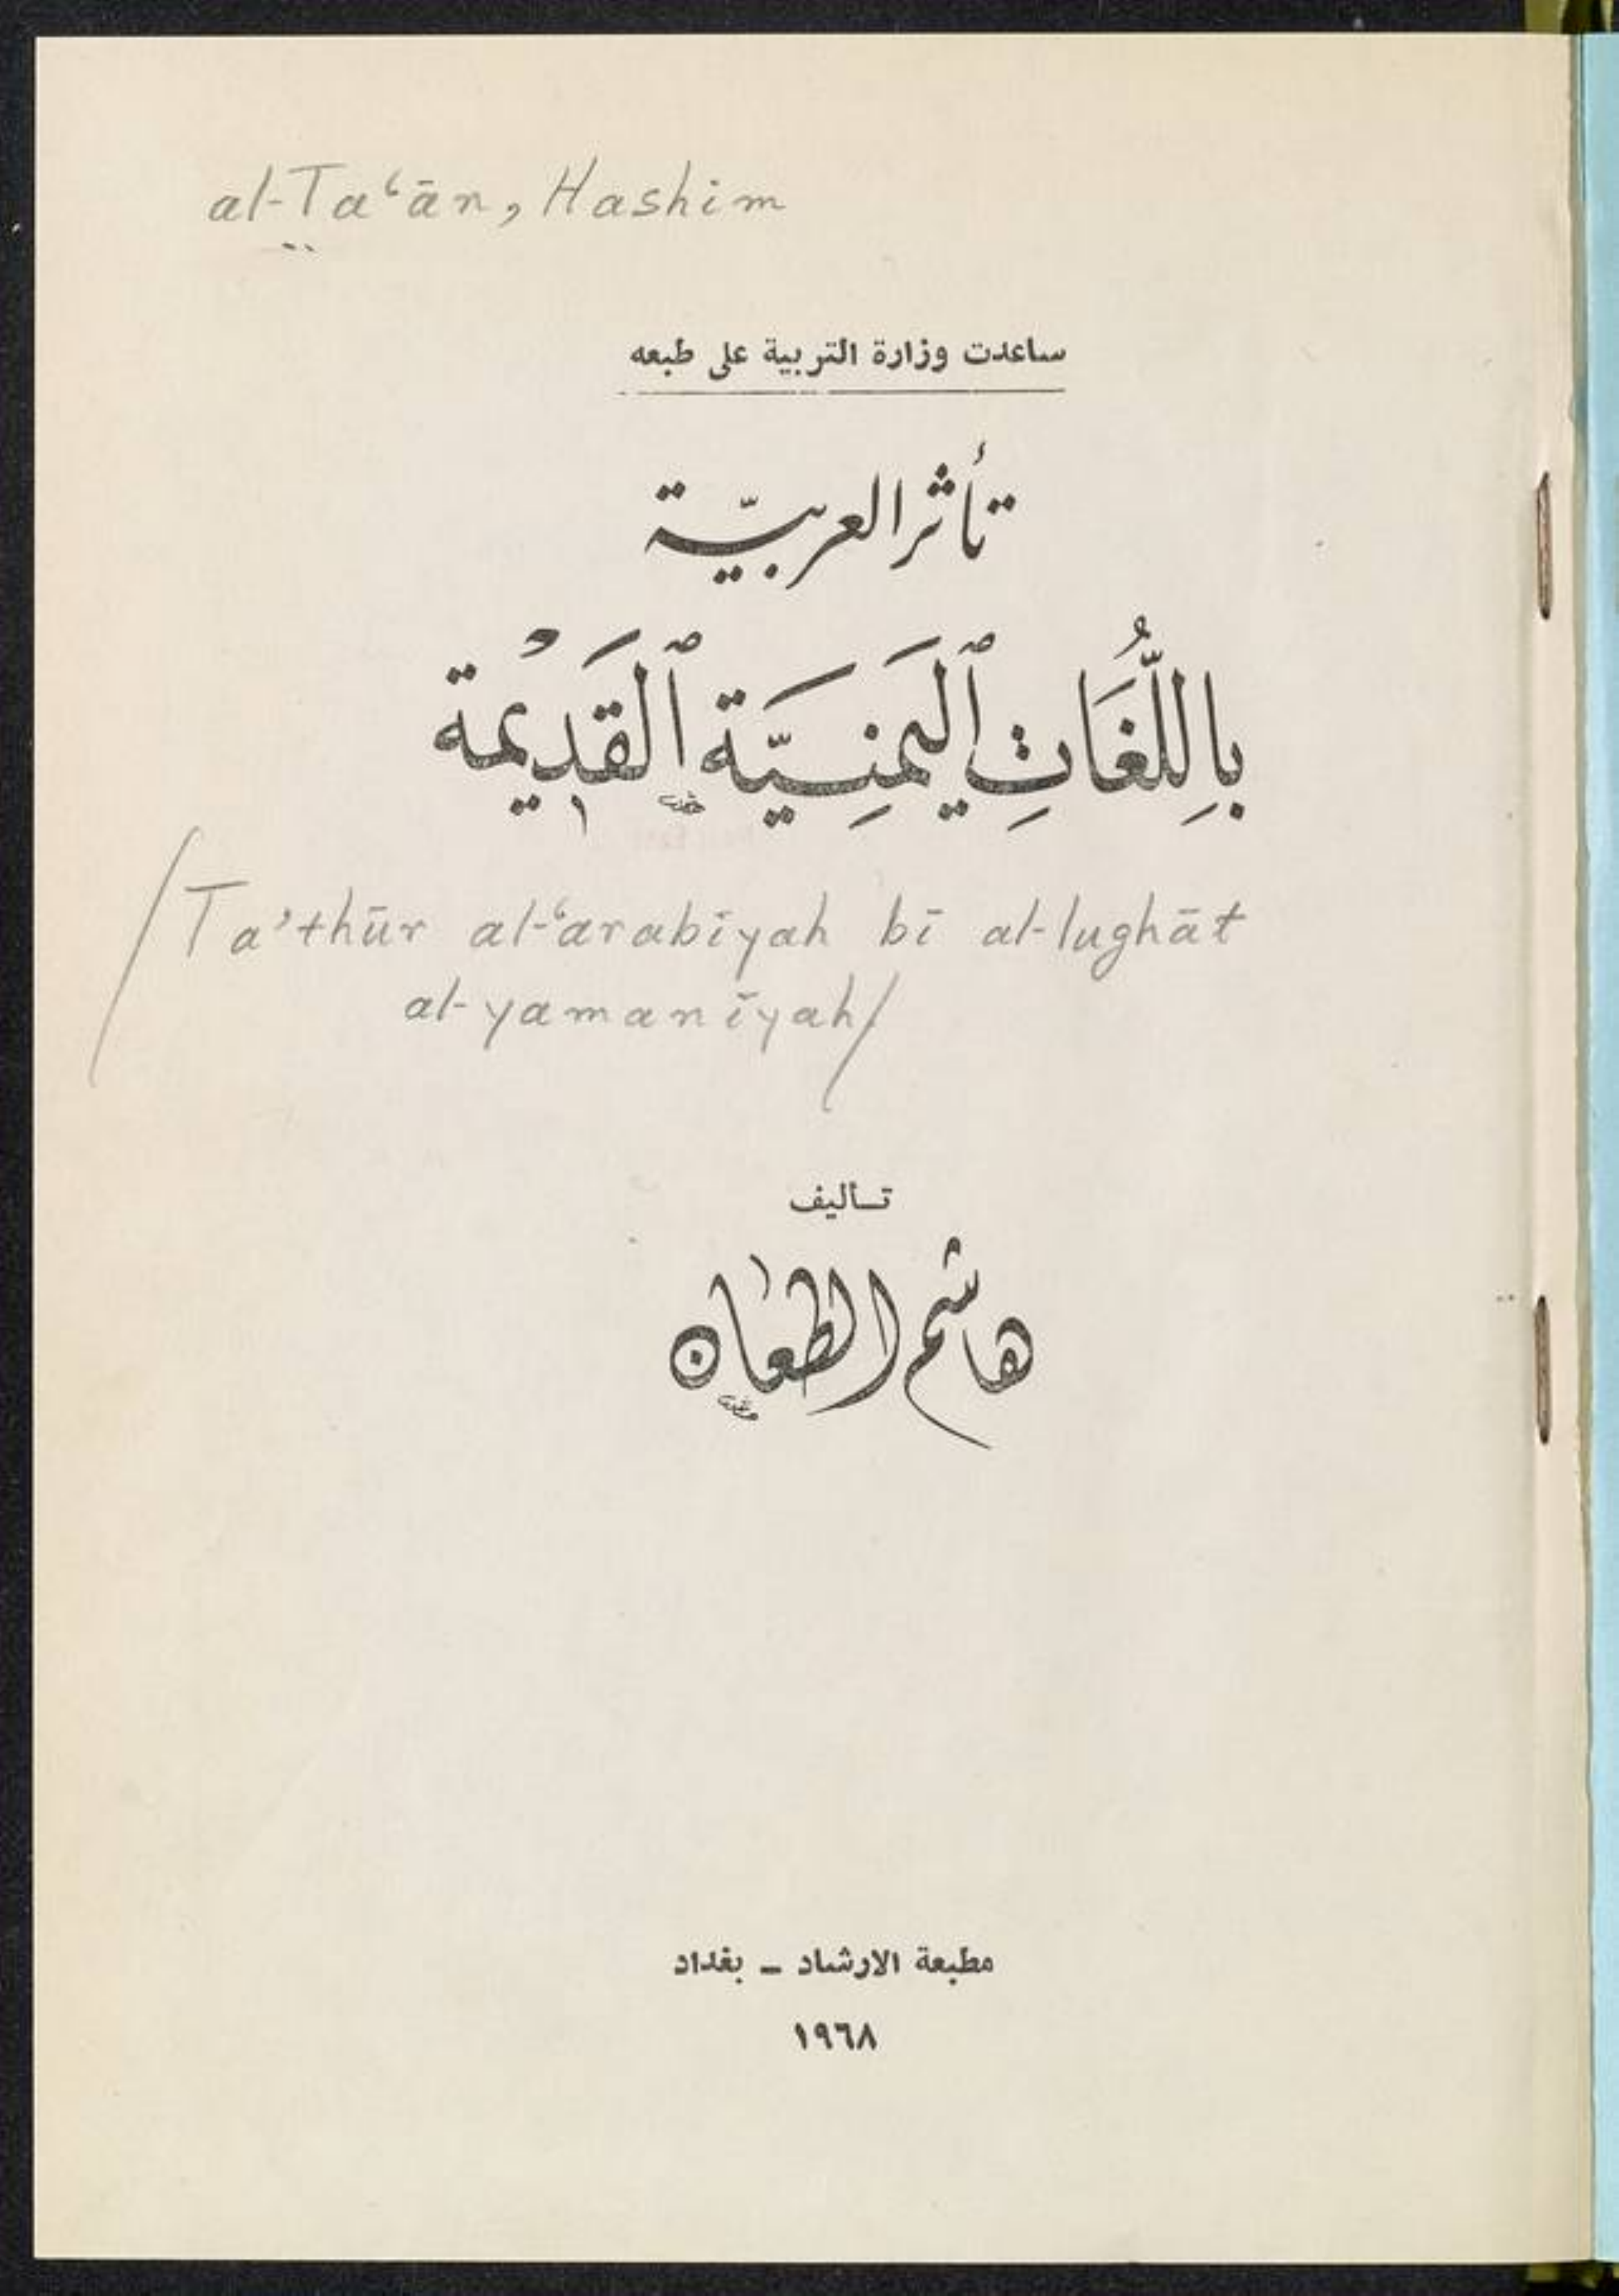 al-Ta‘ān, Hashim
ساعدت وزارة التربية على طبعه
تأثر العربيّة
بِاللُّغَاتِ ٱليَمنِيَّة ٱلقَديْمة
/Ta'thūr al-‘arabīyah bī al-lughāt
al-yamanīyah/
تـأليف
هاشم الطعان
مطبعة الارشاد – بغداد
١٩٦٨